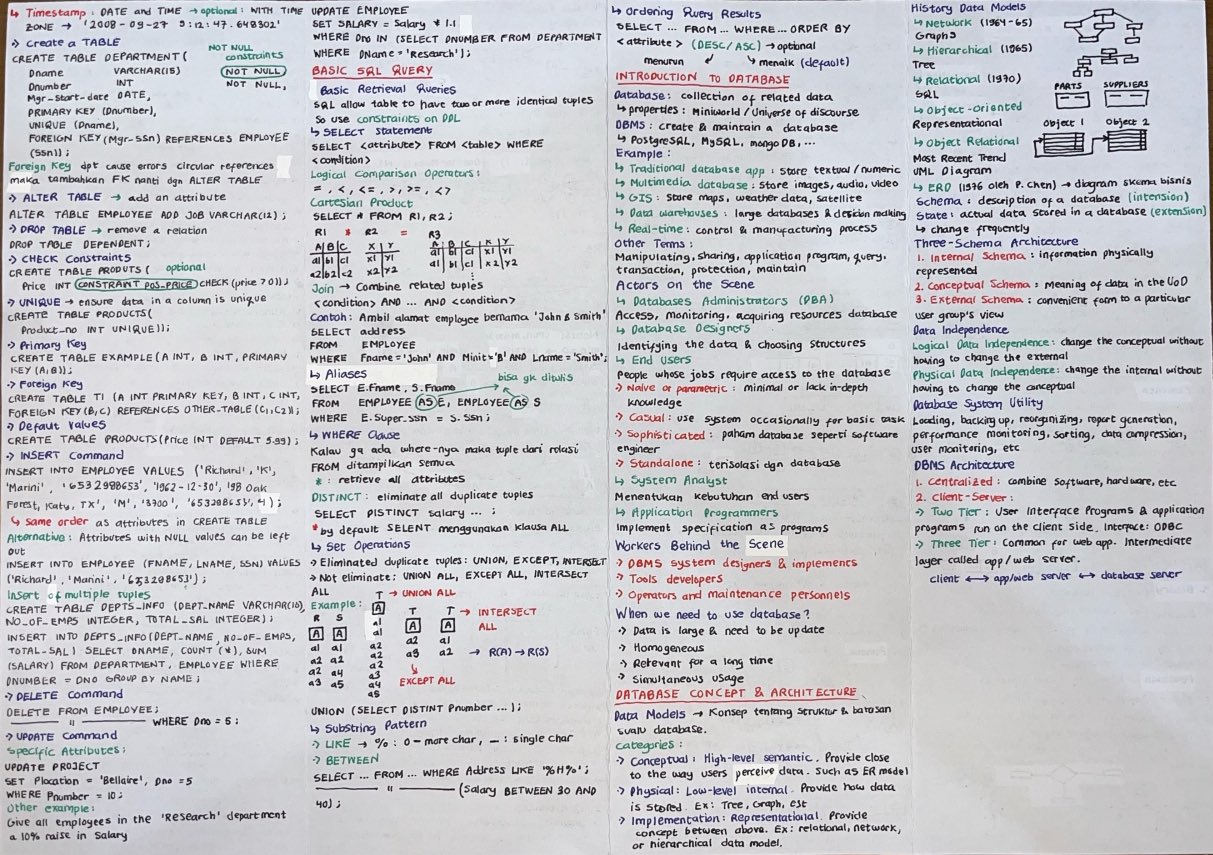 ↳ Timestamp : DATE and TIME → optional : WITH TIME
ZONE → '2008-09-27 9:12:47.648302'
> Create a TABLE
NOT NULL
constraints
CREATE TABLE DEPARTMENT (
Dname VARCHAR(15) NOT NULL,
Dnumber INT NOT NULL,
Mgr-start-date DATE,
PRIMARY KEY (Dnumber),
UNIQUE (Dname),
FOREIGN KEY (Mgr-SSN) REFERENCES EMPLOYEE
(Ssn));
Foreign Key dpt cause errors circular references
maka tambahkan FK nanti dgn ALTER TABLE
> ALTER TABLE → add an attribute
ALTER TABLE EMPLOYEE ADD JOB VARCHAR(12) ;
> DROP TABLE → remove a relation
DROP TABLE DEPENDENT ;
> CHECK Constraints
CREATE TABLE PRODUTS ( optional
Price INT CONSTRAINT POS_PRICE CHECK (price > 0));
> UNIQUE → ensure data in a column is unique
CREATE TABLE PRODUCTS (
Product_no INT UNIQUE));
> Primary Key
CREATE TABLE EXAMPLE (A INT, B INT, PRIMARY
KEY (A,B));
> Foreign Key
CREATE TABLE T1 (A INT PRIMARY KEY, B INT, C INT,
FOREIGN KEY (B,C) REFERENCES OTHER-TABLE (C1,C2));
> Default Values
CREATE TABLE PRODUCTS (Price INT DEFAULT 9.99) ;
> INSERT Command
INSERT INTO EMPLOYEE VALUES ('Richard', 'K',
'Marini', '653298653', '1962-12-30', '98 Oak
Forest, Katy, TX', 'M', '3700', '653298653', 4) ;
↳ same order as attributes in CREATE TABLE
Alternative : Attributes with NULL values can be left
out
INSERT INTO EMPLOYEE (FNAME, LNAME, SSN) VALUES
('Richard', 'Marini', '653298653') ;
Insert of multiple tuples
CREATE TABLE DEPTS_INFO (DEPT_NAME VARCHAR(10),
NO_OF_EMPS INTEGER, TOTAL_SAL INTEGER) ;
INSERT INTO DEPTS_INFO (DEPT-NAME, NO-OF-EMPS,
TOTAL-SAL) SELECT DNAME, COUNT (*), SUM
(SALARY) FROM DEPARTMENT, EMPLOYEE WHERE
DNUMBER = DNO GROUP BY NAME ;
> DELETE Command
DELETE FROM EMPLOYEE ;
—— " —— WHERE Dno = 5 ;
> UPDATE Command
Specific Attributes :
UPDATE PROJECT
SET Plocation = 'Bellaire', Dno = 5
WHERE Pnumber = 10 ;
Other example :
Give all employees in the 'Research' department
a 10% raise in Salary
UPDATE EMPLOYEE
SET SALARY = Salary * 1.1
WHERE Dno IN (SELECT DNUMBER FROM DEPARTMENT
WHERE DName = 'Research') ;
BASIC SQL QUERY
Basic Retrieval Queries
SQL allow table to have two or more identical tuples
So use constraints on DDL
↳ SELECT Statement
SELECT <attribute> FROM <table> WHERE
<condition>
Logical Comparison Operators :
= , < , <= , > , >= , <>
Cartesian Product
SELECT * FROM R1, R2 ;
R1 * R2 = R3
A B C X Y A B C X Y
a1 b1 c1 x1 y1 a1 b1 c1 x1 y1
a2 b2 c2 x2 y2 a1 b1 c1 x2 y2
Join → Combine related tuples
<condition> AND ... AND <condition>
Contoh : Ambil alamat employee bernama 'John B Smith'
SELECT address
FROM EMPLOYEE
WHERE Fname = 'John' AND Minit = 'B' AND Lname = 'Smith' ;
↳ Aliases bisa gk ditulis
SELECT E.Fname, S.Fname
FROM EMPLOYEE AS E, EMPLOYEE AS S
WHERE E.Super_ssn = S.Ssn ;
↳ WHERE Clause
Kalau ga ada where-nya maka tuple dari relasi
FROM ditampilkan semua
* : retrieve all attributes
DISTINCT : eliminate all duplicate tuples
SELECT DISTINCT Salary ... ;
* by default SELENT menggunakan klausa ALL
↳ Set Operations
> Eliminated duplicate tuples : UNION, EXCEPT, INTERSECT
> Not eliminate : UNION ALL, EXCEPT ALL, INTERSECT
ALL T → UNION ALL
Example : A T T → INTERSECT
R S a1 A A ALL
A A a1 a2 a1
a1 a1 a2 a3 a2 → R(A) → R(S)
a2 a2 a2
a2 a4 a3 EXCEPT ALL
a3 a5 a4
a5
UNION (SELECT DISTINT Pnumber ... ) ;
↳ Substring Pattern
> LIKE → % : 0 – more char, _ : single char
> BETWEEN
SELECT ... FROM ... WHERE Address LIKE '%H%' ;
—— " —— (Salary BETWEEN 30 AND
40) ;
↳ Ordering Query Results
SELECT ... FROM ... WHERE ... ORDER BY
<attribute> (DESC/ASC) → optional
menurun menaik (default)
INTRODUCTION TO DATABASE
Database : collection of related data
↳ properties : Miniworld / Universe of discourse
DBMS : create & maintain a database
↳ PostgreSQL, MySQL, mongo DB, ...
Example :
↳ Traditional database app : store textual / numeric
↳ Multimedia database : store images, audio, video
↳ GIS : store maps, weather data, satellite
↳ Data warehouses : large databases & decision making
↳ Real-time : control & manufacturing process
Other Terms :
Manipulating, sharing, application program, query,
transaction, protection, maintain
Actors on the Scene
↳ Databases Administrators (DBA)
Access, monitoring, acquiring resources database
↳ Database Designers
Identifying the data & choosing structures
↳ End Users
People whose jobs require access to the database
> Naive or parametric : minimal or lack in-depth
knowledge
> Casual : use system occasionally for basic task
> Sophisticated : paham database seperti software
engineer
> Standalone : terisolasi dgn database
↳ System Analyst
Menentukan kebutuhan end users
↳ Application Programmers
Implement specification as programs
Workers Behind the Scene
> DBMS system designers & implements
> Tools developers
> Operators and maintenance personnels
When we need to use database ?
> Data is large & need to be update
> Homogeneous
> Relevant for a long time
> Simultaneous usage
DATABASE CONCEPT & ARCHITECTURE
Data Models → Konsep tentang struktur & batasan
suatu database.
Categories :
> Conceptual : High-level semantic. Provide close
to the way users perceive data. Such as ER model
> Physical : Low-level internal. Provide how data
is stored. Ex : Tree, Graph, est
> Implementation : Representational. Provide
concept between above. Ex : relational, network,
or hierarchical data model.
History Data Models
↳ Network (1964-65)
Graphs
↳ Hierarchical (1965)
Tree
↳ Relational (1970)
SQL
PARTS SUPPLIERS
↳ Object-Oriented
Representational
Object 1 Object 2
↳ Object Relational
Most Recent Trend
UML Diagram
↳ ERD (1976 oleh P. Chen) → diagram skema bisnis
Schema : description of a database (intension)
State : actual data stored in a database (extension)
↳ change frequently
Three-Schema Architecture
1. Internal Schema : information physically
represented
2. Conceptual Schema : Meaning of data in the UoD
3. External Schema : convenient form to a particular
user group's view
Data Independence
Logical Data Independence : change the conceptual without
having to change the external
Physical Data Independence : change the internal without
having to change the conceptual
Database System Utility
Loading, backing up, reorganizing, report generation,
performance monitoring, sorting, data compression,
user monitoring, etc
DBMS Architecture
1. Centralized : combine software, hardware, etc
2. Client-Server :
> Two Tier : User Interface Programs & application
programs run on the client side. Interface : ODBC
> Three Tier : Common for web app. Intermediate
layer called app / web server.
client ↔ app/web server ↔ database server